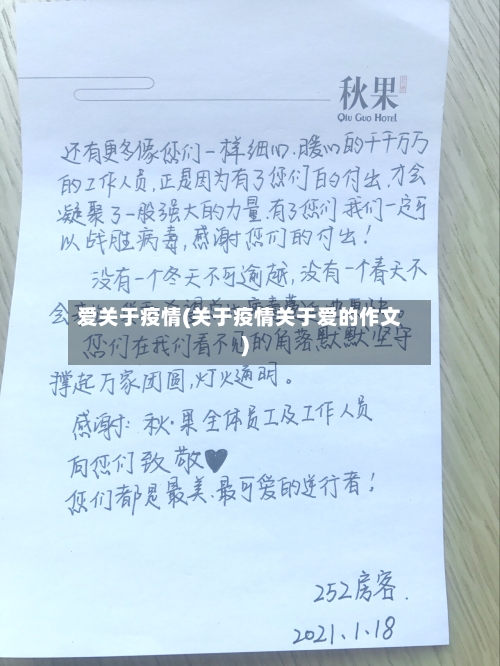 秋果
Qiu Guo Hotel
还有更多像您们一样细心、暖心的千千万万
的工作人员,正是因为有了您们的付出,才会
凝聚了一股强大的力量,有了您们,我们一定可
以战胜病毒,感谢您们的付出!
没有一个冬天不可逾越,没有一个春天不
会
爱关于疫情(关于疫情关于爱的作文
)
您们在我们看不见的角落默默坚守
撑起万家团圆,灯火通明。
感谢: 秋·果全体员工及工作人员
向您们致敬♥
您们都是最美、最可爱的逆行者!
252房客.
2021.1.18